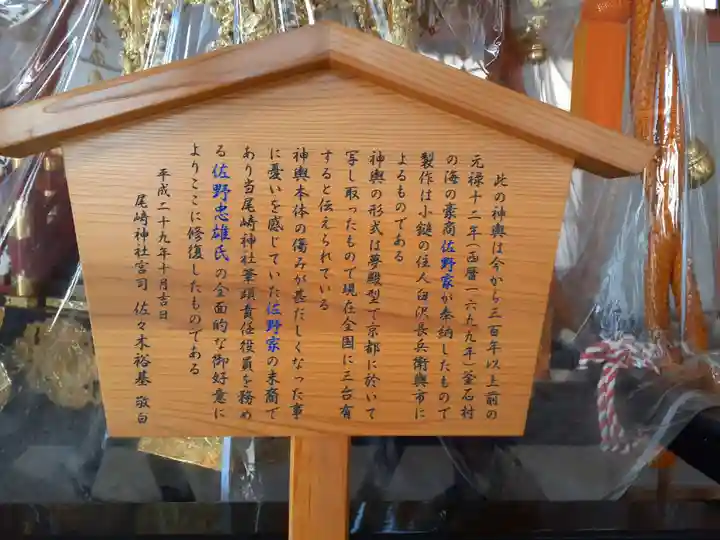 此の神輿は今から三百年以上前の
元禄十二年(西暦一六九九年)釜石村
の海の豪商佐野家が奉納したもので
製作は小鎚の住人臼沢長兵衛與市に
よるものである
神輿の形式は夢殿型で京都に於いて
写し取ったもので現在全国に三台有
すると伝えられている
神輿本体の傷みが甚だしくなった事
に憂いを感じていた佐野家の末裔で
あり当尾崎神社筆頭責任役員を務め
る佐野忠雄氏の全面的な御好意に
よりここに修復したものである
平成二十九年十月吉日
尾崎神社宮司 佐々木裕基 敬白